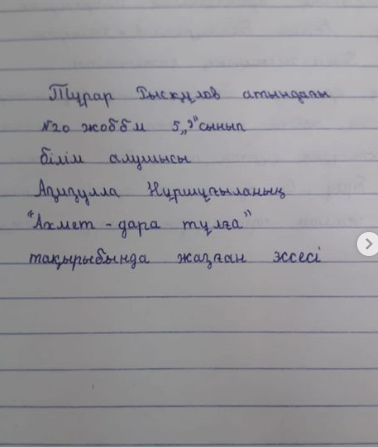 Тұрар Рысқұлов атындағы
№20 жоббм 5 „Ә" сынып
білім алушысы
Азизулла Нұршуғыланың
"Ахмет - дара тұлға"
тақырыбында жазған эссесі